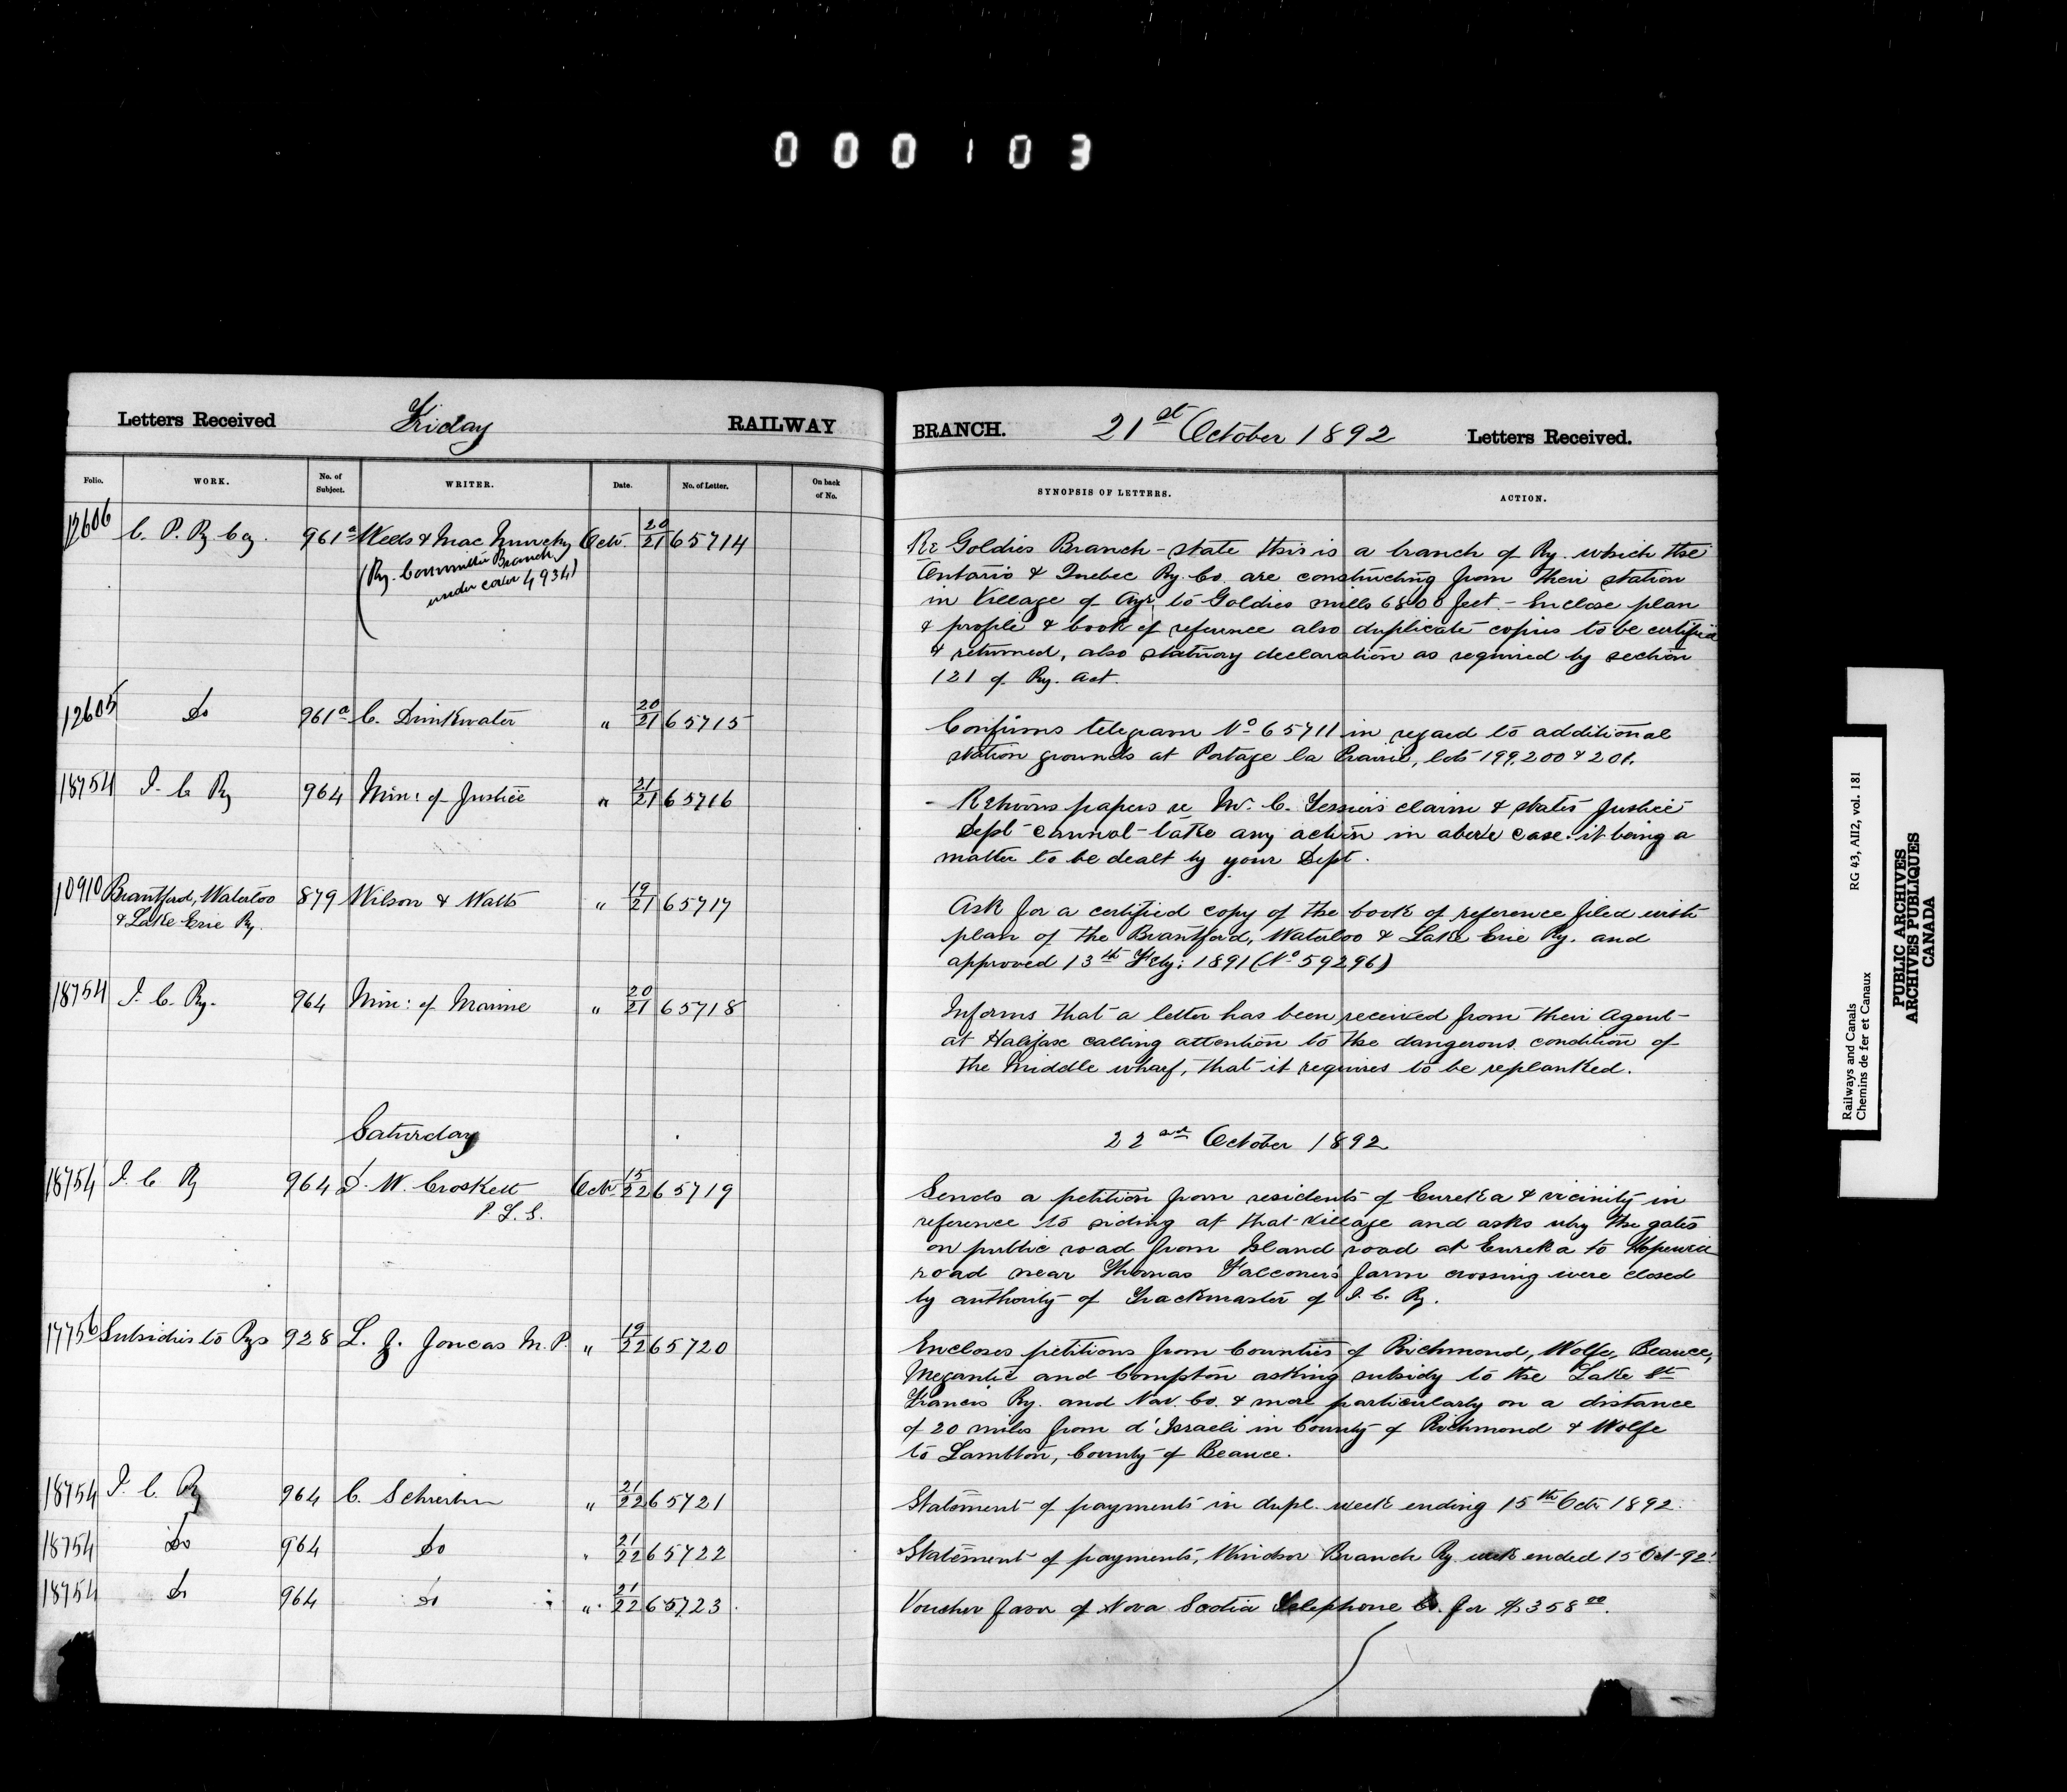 000103
Letters Received Friday RAILWAY BRANCH. 21st October 1892 Letters Received.
Folio. WORK. No. of Subject. WRITER. Date. No. of Letter. On back of No. SYNOPSIS OF LETTERS. ACTION.
12606 C. P. Ry Coy. 961a Wells & Mac Murchy Oct. 20/21 65714
(Ry. Committee Branch
under cover 4934)
Re Goldies Branch - state this is a branch of Ry. which the
Ontario & Quebec Ry. Co. are constructing from their station
in Village of Ayr to Goldies mills 6800 feet. - Enclose plan
& profile & book of reference also duplicate copies to be certified
& returned, also statuory declaration as required by section
121 of Ry. Act.
12605 Do 961a C. Drinkwater " 20/21 65715
Confirms telegram No 65711 in regard to additional
station grounds at Portage la Prairie, lots 199, 200 & 201.
18754 I. C Ry 964 Min: of Justice " 21/21 65716
- Returns papers re Mr. C. claim & states Justice
Dept cannot take any action in above case. it being a
matter to be dealt by your Dept.
10910 Brantford, Waterloo 879 Wilson & Watts " 19/21 65717
& Lake Erie Ry.
Ask for a certified copy of the book of reference filed with
plan of the Brantford, Waterloo & Lake Erie Ry. and
approved 13th Feby: 1891 (No 59296)
18754 I. C. Ry. 964 Min: of Marine " 20/21 65718
Informs that a letter has been received from their Agent
at Halifax calling attention to the dangerous condition of
the Middle wharf, that it requires to be replanked.
Saturday 22nd October 1892
18754 I. C Ry 964 W. Croskett Oct. 15/22 65719
P. L. S.
Sends a petition from residents of Eureka & vicinity in
reference to siding at that village and asks why the gates
on public road from Island road at Eureka to Hopewell
road near Thomas Falconer's farm crossing were closed
by authority of Trackmaster of I. C. Ry.
17756 Subsidies to Rys 928 L. Z. Joncas M. P. " 19/22 65720
Encloses petitions from Counties of Richmond, Wolfe, Beauce,
Megantic and Compton asking subsidy to the Lake St
Francis Ry. and Nav. Co. & more particularly on a distance
of 20 miles from d'Israeli in County of Richmond & Wolfe
to Lambton, County of Beauce.
18754 I. C. Ry 964 C. Schreiber " 21/22 65721
Statement of payments in dupl. week ending 15th Oct. 1892.
18754 Do 964 Do " 21/22 65722
Statement of payments, Windsor Branch Ry week ended 15 Oct-92.
18754 Do 964 Do " 21/22 65723
Voucher favor of Nova Scotia Telephone Co. for $358 00.
Railways and Canals RG 43, AII2, vol. 181
Chemins de fer et Canaux
PUBLIC ARCHIVES
ARCHIVES PUBLIQUES
CANADA